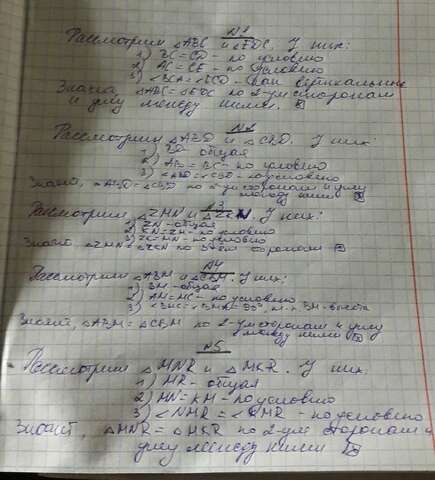 №1
Рассмотрим △ABC и △EDC. У них:
1) BC=CD - по условию
2) AC=CE - по условию
3) ∠BCA=∠ECD - как вертикальные
Значит, △ABC=△EDC по 2-ум сторонам
и углу между ними.
№2
Рассмотрим △ABD и △CBD. У них:
1) BD - общая
2) AB=BC - по условию
3) ∠ABD=∠CBD - по условию
Значит, △ABD=△CBD по 2-ум сторонам и углу
между ними
№3
Рассмотрим △ZMN и. У них:
1) - общая
2) - по условию
3) - по условию
Значит, по 3-ём сторонам
№4
Рассмотрим △ABM и △CBM. У них:
1) BM - общая
2) AM=MC - по условию
3) =90°, BM - высота
Значит, △ABM=△CBM по 2-ум сторонам и углу
между ними
№5
Рассмотрим △MNR и △MKR. У них:
1) MR - общая
2) MN=KM - по условию
3) ∠NMR=∠KMR - по условию
Значит, △MNR=△MKR по 2-ум сторонам и
углу между ними